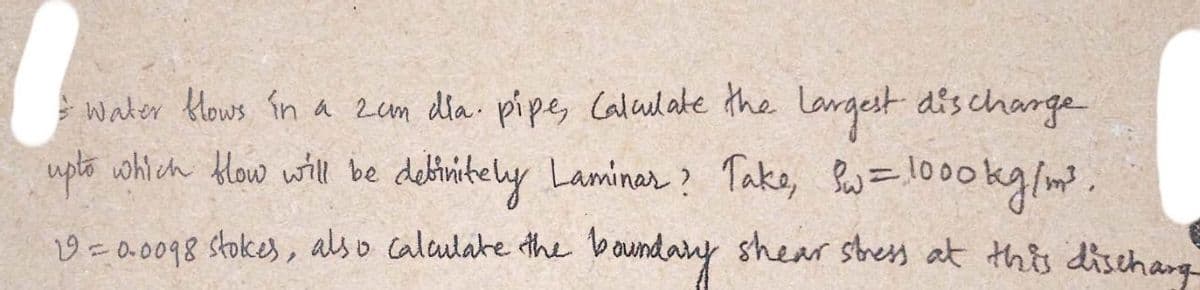 : Water flows in a 2cm dia. pipe, Calculate the Largest discharge
upto which flow will be definitely Laminar? Take, ρw=1000kg/m³.
ν=0.0098 stokes, also calculate the boundary shear stress at this discharg